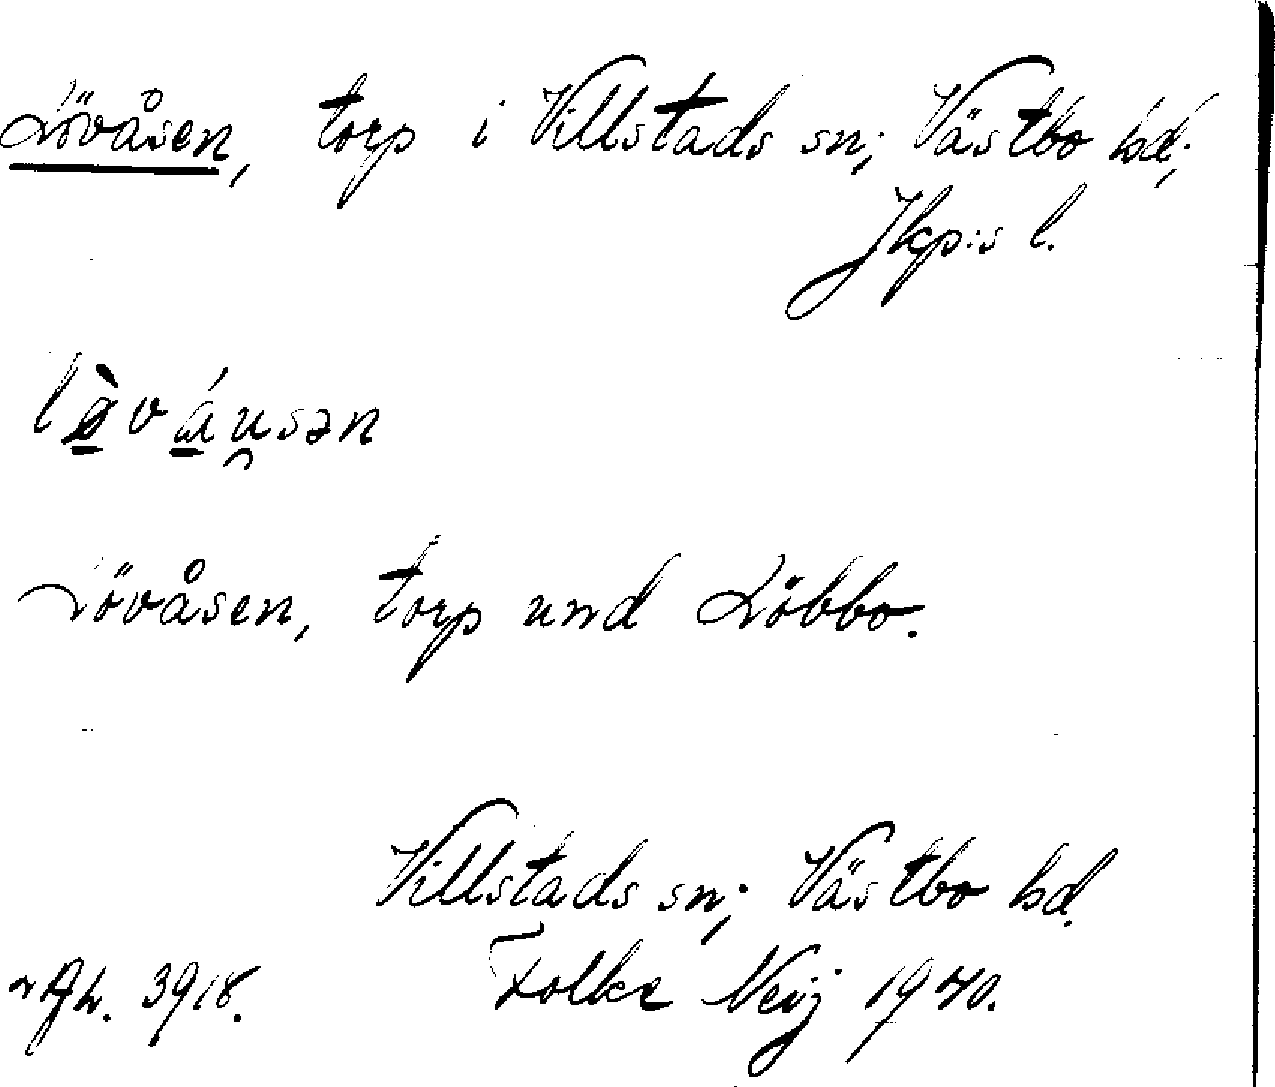 Lövåsen, torp i Villstads sn; Västbo hd;
Jkp:s l.
Lövåsen, torp und Löbbo.
Villstads sn; Västbo hd.
3918. Folke Neij 1940.